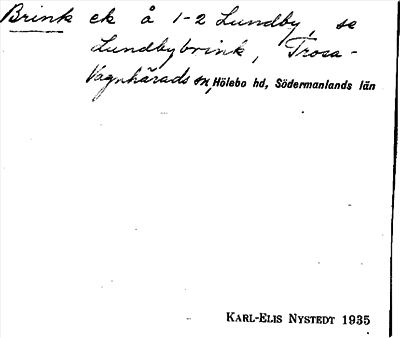 Brink ek å 1-2 Lundby, se
Lundbybrink, Trosa-
Vagnhärads sn, Hölebo hd, Södermanlands län
KARL-ELIS NYSTEDT 1935